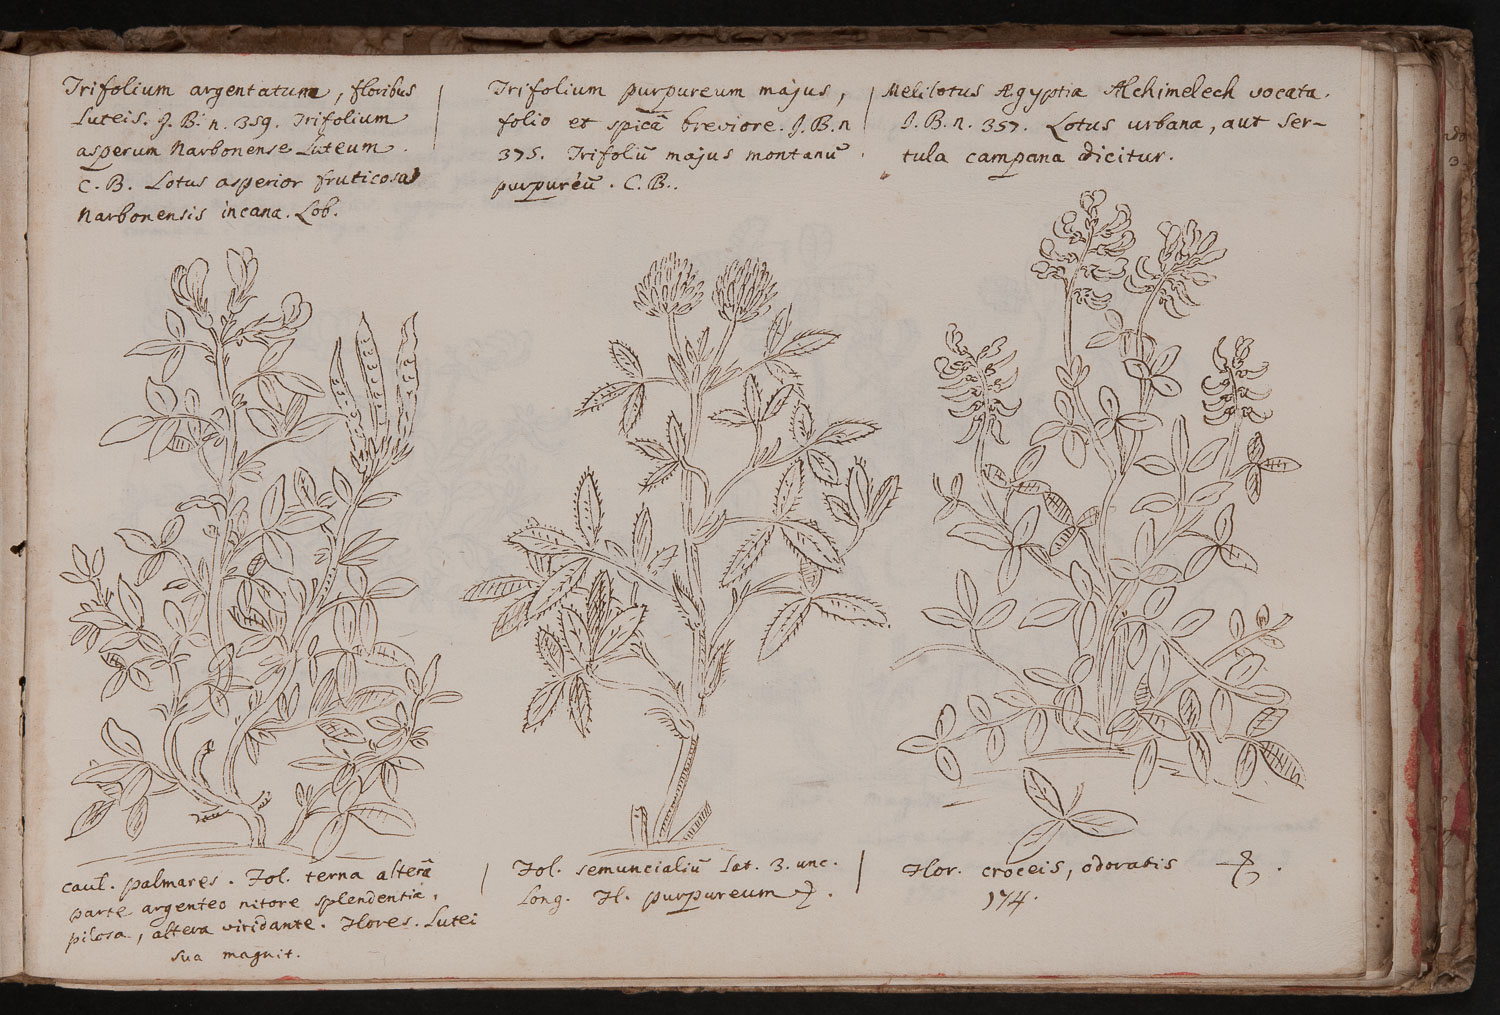 Trifolium argentatum, floribus
Luteis. J. B. n. 359. Trifolium
asperum Narbonense Luteum.
C. B. Lotus asperior fruticosa
Narbonensis incana. Lob.
Trifolium purpureum majus,
folio et spicâ breviore. J. B. n
375. Trifoliū majus montanū
purpureū. C. B..
Melilotus Ægyptia Alchimelech vocata.
J. B. n. 357. Lotus urbana, aut Ser-
tula campana dicitur.
caul. palmares. Fol. terna alterâ
parte argenteo nitore splendentia,
pilosa, altera viridante. Flores. Lutei
sua magnit.
Fol. semuncialiū Lat. 3. unc.
Long. Fl. purpureum
Flor. croceis, odoratis
174.